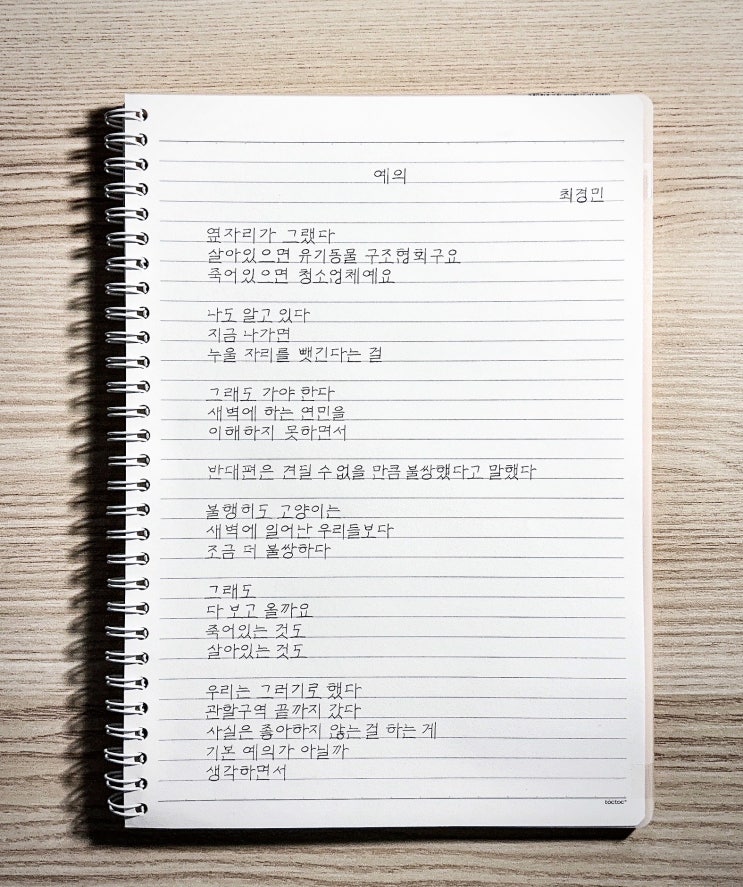 예의
최경민
옆자리가 그랬다
살아있으면 유기동물 구조협회구요
죽어있으면 청소업체예요
나도 알고 있다
지금 나가면
누울 자리를 뺏긴다는 걸
그래도 가야 한다
새벽에 하는 연민을
이해하지 못하면서
반대편은 견딜 수 없을 만큼 불쌍했다고 말했다
불행히도 고양이는
새벽에 일어난 우리들보다
조금 더 불쌍하다
그래도
다 보고 올까요
죽어있는 것도
살아있는 것도
우리는 그러기로 했다
관할구역 끝까지 갔다
사실은 좋아하지 않는 걸 하는 게
기본 예의가 아닐까
생각하면서
toctoc